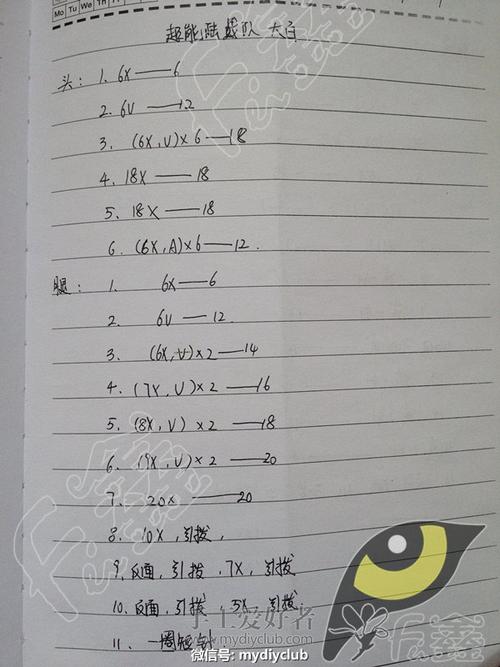 Mo Tu We Th Fr
超能陆战队 大白
头: 1. 6X——6
2. 6V——12
3. (6X, V)×6——18
4. 18X——18
5. 18X——18
6. (6X, A)×6——12.
腿: 1. 6X——6
2. 6V——12.
3. (6X, V)×2——14
4. (7X, V)×2——16
5. (8X, V)×2——18
6. (9X, V)×2——20
7. 20X——20
8. 10X, 引拨,
9, 反面, 引拨, 7X, 引拨
10. 反面, 引拨 5X, 引拨
11. 一圈短针
手工爱好者
www.mydiyclub.com
微信号: mydiyclub